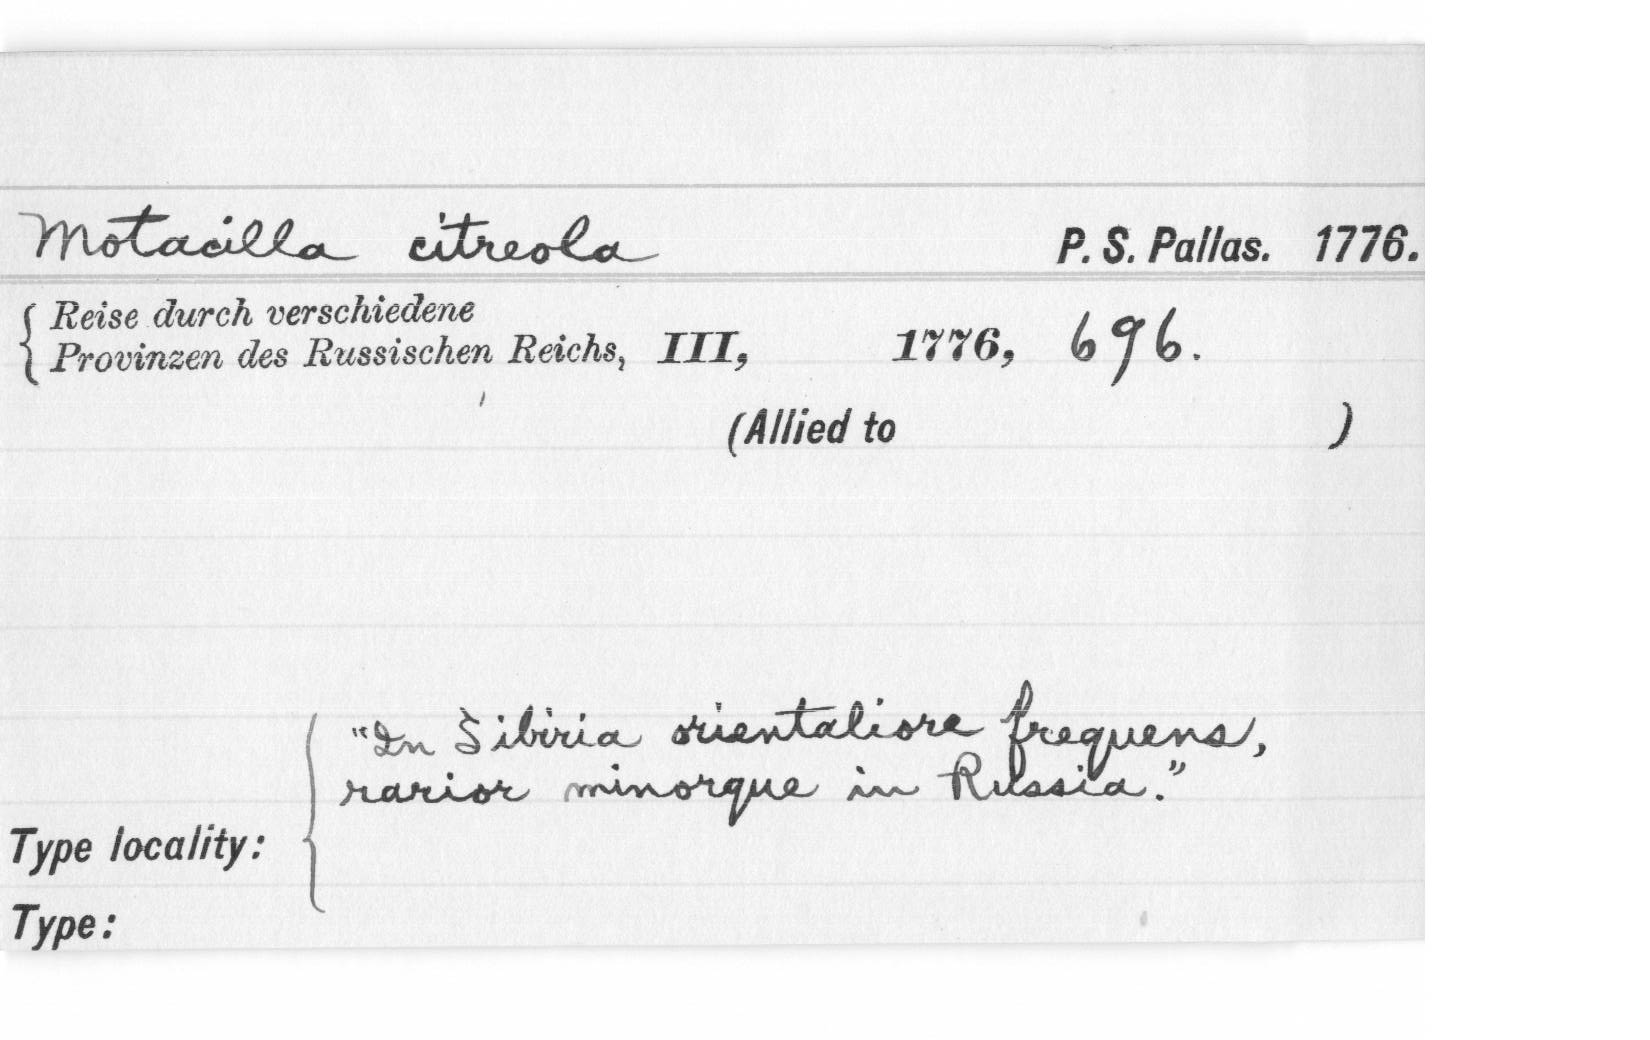 Motacilla citreola P. S. Pallas. 1776.
Reise durch verschiedene
Provinzen des Russischen Reichs, III, 1776, 696.
(Allied to )
"In Sibiria orientaliore frequens,
rarior minorque in Russia."
Type locality:
Type: